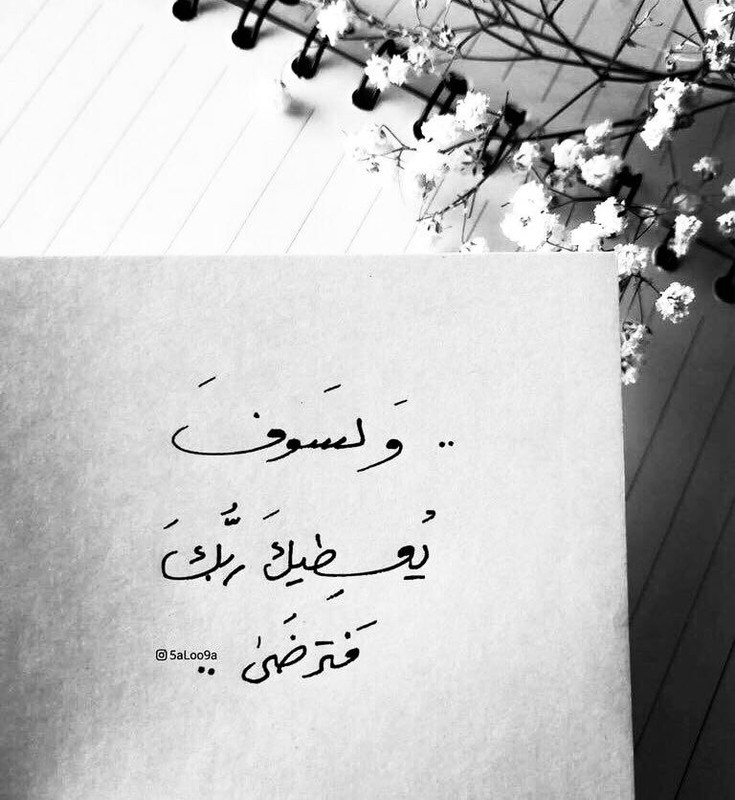 .. وَ لسَوفَ
يُعطِيكَ رَبُّكَ
فَترضَىٰ ..
5aLoo9a